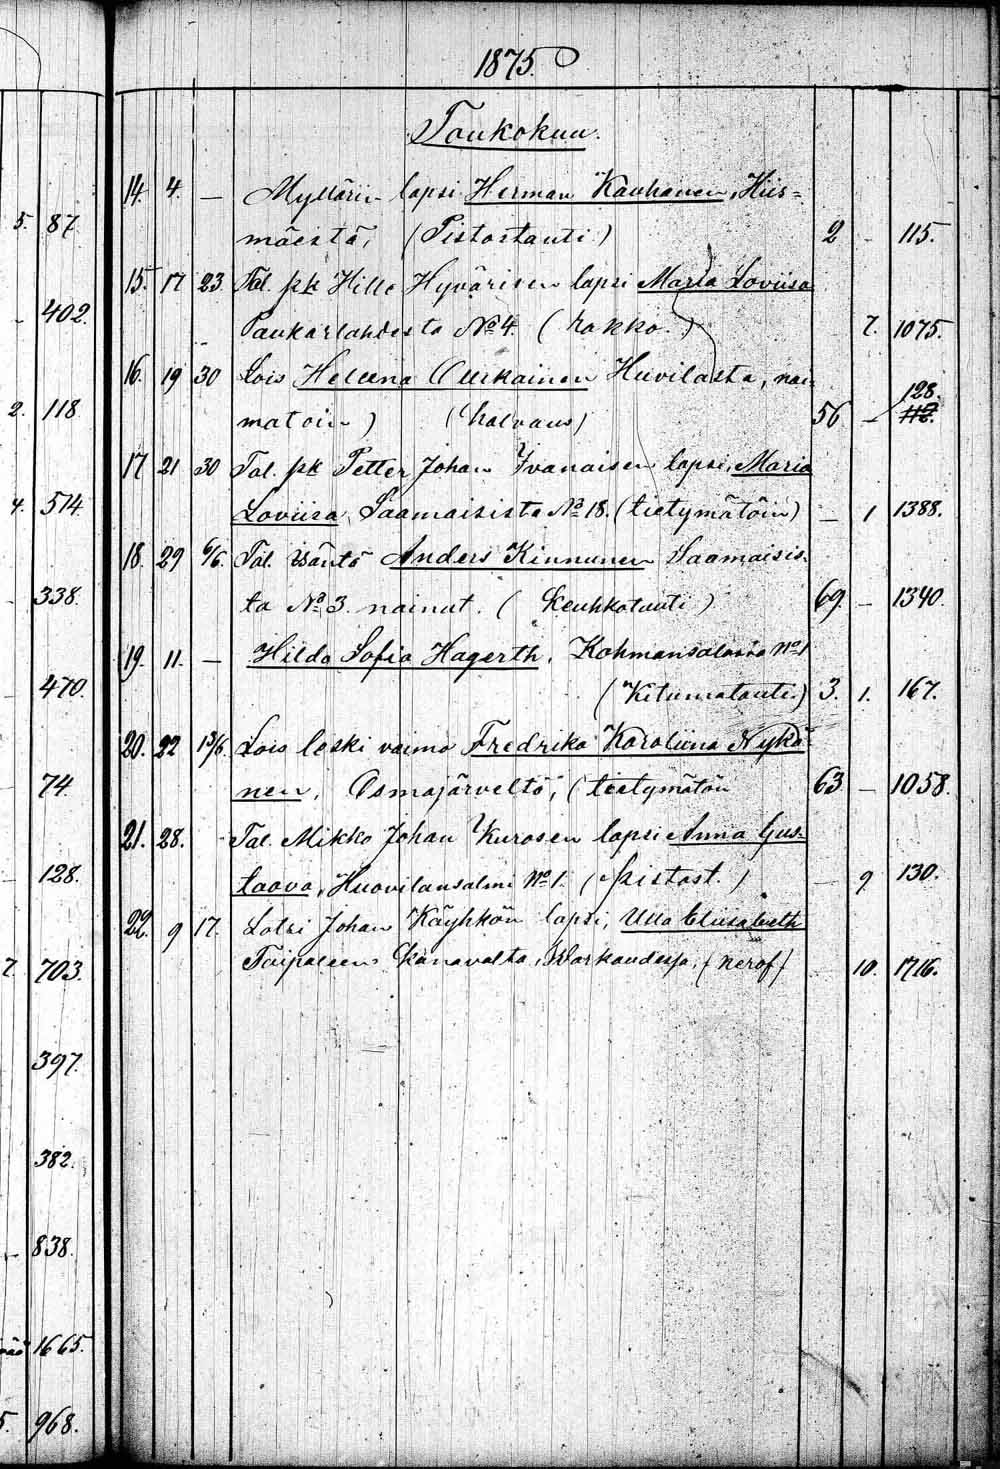 1875.
Toukokuu.
14. 4. — Myllärin lapsi Herman Kauhanen, Hiis=
5. 87. mäestä, (Pistostauti) 2 - 115.
15. 17 23. Tal. pk Hille Hyvärisen lapsi Maria Loviisa
402. Paukarlahdesta No 4. (rokko.) 7. 1075.
16. 19 30 Lois Heleena Ourkainen Huvilasta, nai=
128.
2. 118. matoin) (halvaus) 56 - 112.
17 21 30 Tal. pk Petter Johan Ivanaisen lapsi, Maria
4. 514. Loviisa, Saamaisista No 18. (tietymätöin) — 1 1388.
18. 29 6/6. Tal. isäntö Anders Kinnunen Saamaisis=
338. ta No 3. nainut. (Keuhkotauti) 69. — 1340.
19. 11. — Hilda Sofia Hagerth, Kohmansalosta No 1
470. (Kitumatauti.) 3. 1. 167.
20. 22 13/6. Lois leski vaimo Fredrika Karoliina Nykä=
74. nen, Osmajärveltö, (tietymätön 63. — 1058.
21. 28. - Tal. Mikko Johan Kurosen lapsi Anna Gus=
128. taava, Huovilansalmi No 1. (pistost.) — 9 130.
22. 9 17. Lotsi Johan Käyhkön lapsi, Ulla Eliisabeth
7. 703. Taipaleen kanavalta, Warkaudessa, (kerof) 10. 1716.
397.
382.
838.
1665.
5. 968.